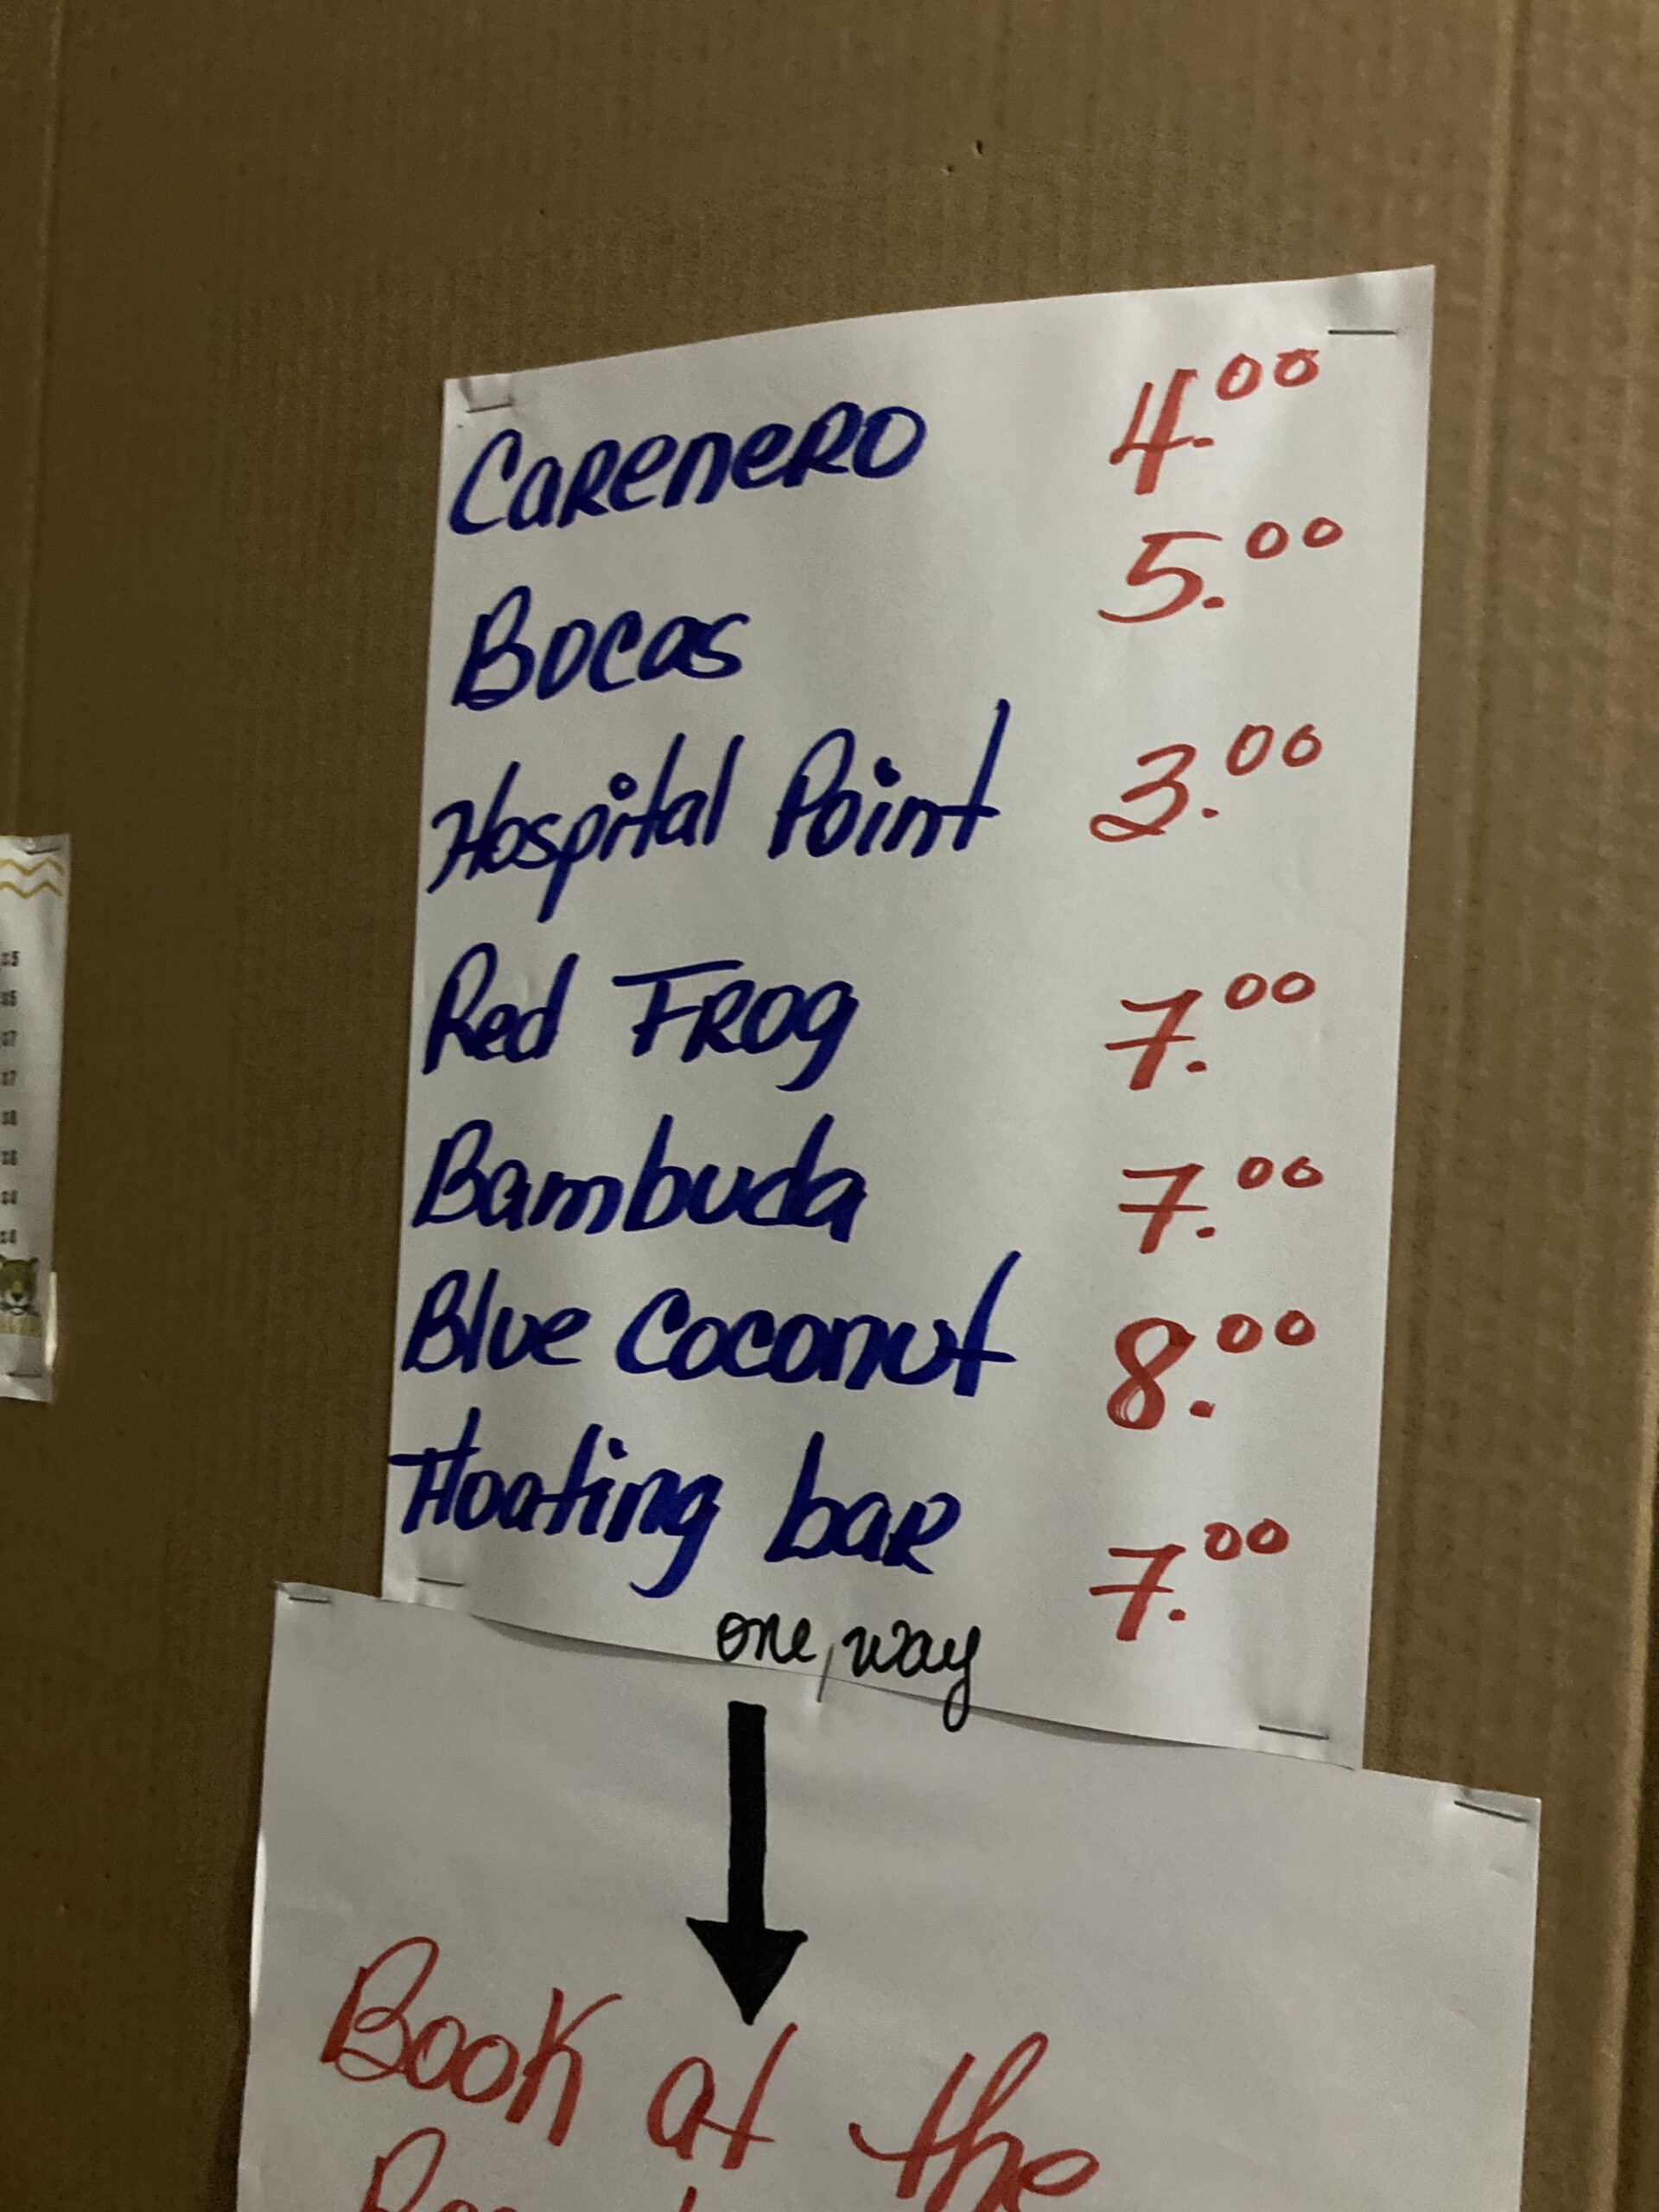 Carenero 4.00
Bocas 5.00
Hospital Point 3.00
Red Frog 7.00
Bambuda 7.00
Blue Coconut 8.00
Floating bar 7.00
one way
Book at the